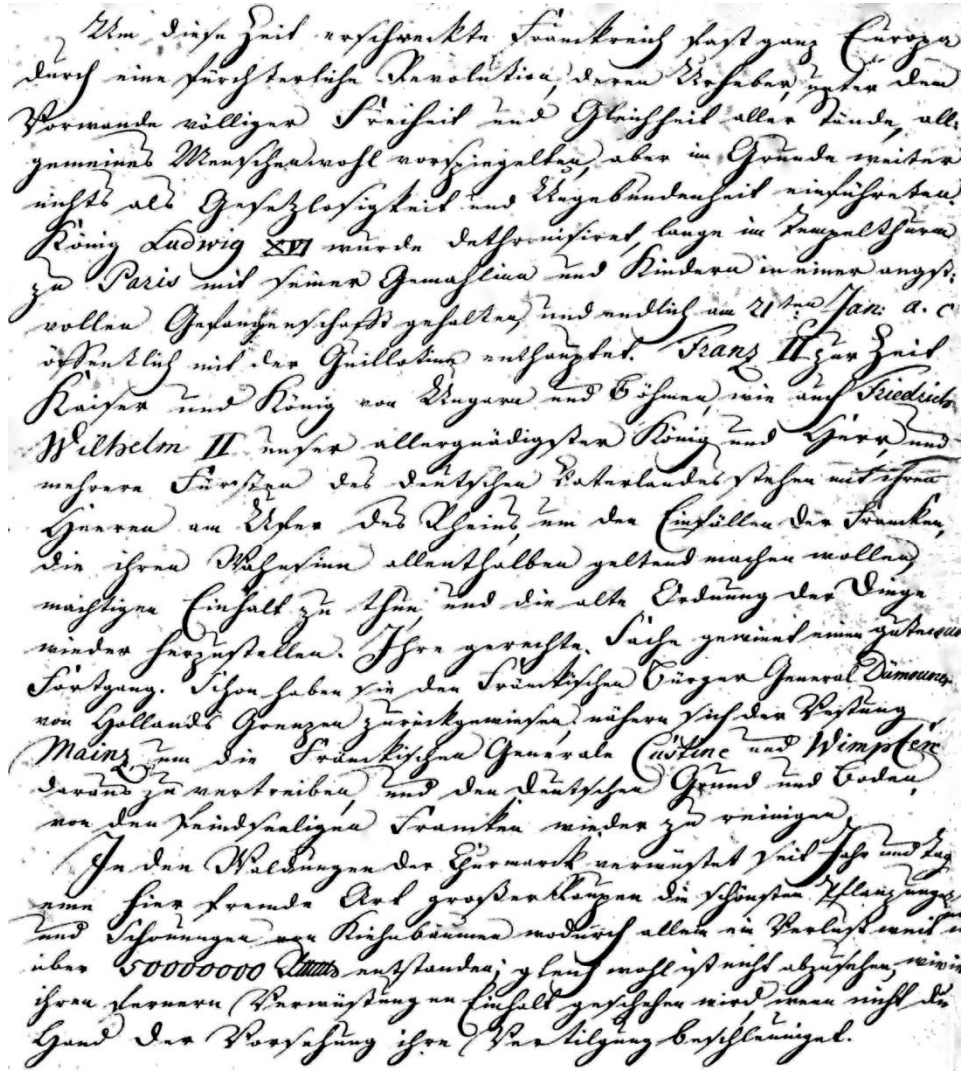 Um diese Zeit erschreckte Franckreich fast ganz Europa
durch eine fürchterliche Revolution, deren Urheber, unter dem
Vorwande völliger Freiheit und Gleichheit aller Stände, all-
gemeines Menschenwohl vorspiegelten, aber im Grunde weiter
nichts als Gesetzlosigkeit und Ungebundenheit einführeten.
König Ludwig XVI wurde dethronisiret, lange im Tempelthurm
zu Paris mit seiner Gemahlinn und Kindern in einer angst-
vollen Gefangenschafft gehalten, und endlich am 21ten Jan: a. c
öffentlich mit der Guillotine enthauptet. Franz II zur Zeit
Kaiser und König von Ungarn und Böhmen, wie auch Friedrich
Wilhelm II unser allergnädigster König und Herr, und
mehrere Fürsten des deutschen Vaterlandes stehen mit ihren
Heeren am Ufer des Rheins, um den Einfällen der Francken,
die ihren Wahnsinn allenthalben geltend machen wollen,
mächtigen Einhalt zu thun, und die alte Ordnung der Dinge
wieder herzustellen. Ihre gerechte Sache gewinnt einen guten
Fortgang. Schon haben sie den Fränckischen Bürger General
von Hollands Grenzen zurückgewiesen, nähern sich der Vestung
Mainz, um die Fränckischen Generale Cüstine und Wimpfen
daraus zu vertreiben, und den deutschen Grund und Boden,
von den feindseeligen Francken wieder zu reinigen.
In den Waldungen der Churmarck verwüstet seit Jahr und Tag
eine hier fremde Art großer Raupen die schönsten Pflanzungen
und Schonungen von Kiehnbäumen wodurch allein ein Verlust weit
über 50000000 entstanden; gleichwohl ist nicht abzusehen, wie
ihren fernern Verwüstungen Einhalt geschehen wird, wenn nicht die
Hand der Vorsehung ihre Vertilgung beschleuniget.